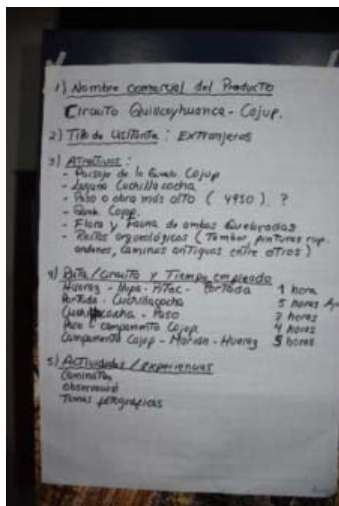 1) Nombre comercial del Producto
Circuito Quillcayhuanca - Cojup.
2) Tipo de Visitante : Extranjeros
3) Atractivos :
- Paisaje de la Queb. Cojup
- Laguna Cuchillacocha
- Paso o abra más alto ( 4950 ). ?
- Queb. Cojup.
- Flora y Fauna de ambas Quebradas
- Restos arqueológicos ( Tambor, pinturas rup.
andenes, caminos antiguos entre otros )
4) Ruta / Circuito y Tiempo empleado
Huaraz - Nupa - Pitec - Portada 1 hora
Portada - Cuchillacocha 5 horas
Cuchillacocha - Paso 2 horas
Paso - campamento Cojup 4 horas
Campamento Cojup - Morián - Huaraz 5 horas
5) Actividades / experiencias
Caminatas
Observación
Tomas fotográficas